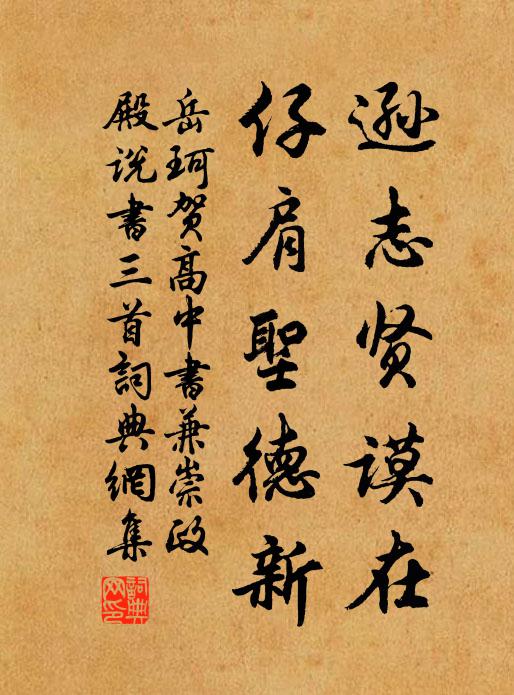 遜志贤谟在
仔肩聖德新
岳珂賀高中書兼崇政
殿说書三首詞典網集
詞典網印